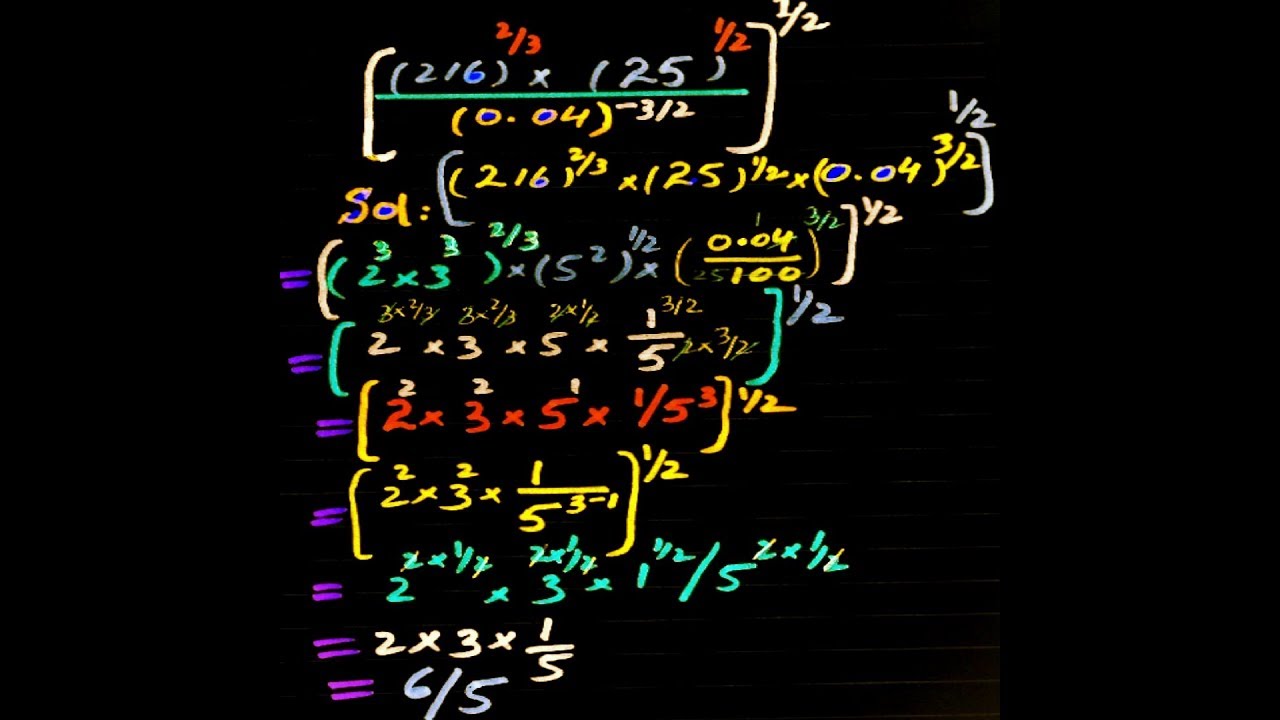 [(216)^2/3 × (25)^1/2 / (0.04)^-3/2]^1/2
Sol: [(216)^2/3 × (25)^1/2 × (0.04)^3/2]^1/2
= [(2^3 × 3^3)^2/3 × (5^2)^1/2 × (0.04 1 / 25 100)^3/2]^1/2
= [2^3×2/3 × 3^3×2/3 × 5^2×1/2 × 1^3/2 / 5^2×3/2]^1/2
= [2^2 × 3^2 × 5^1 × 1/5^3]^1/2
= [2^2 × 3^2 × 1 / 5^3-1]^1/2
= 2^2×1/2 × 3^2×1/2 × 1^1/2 / 5^2×1/2
= 2 × 3 × 1/5
= 6/5